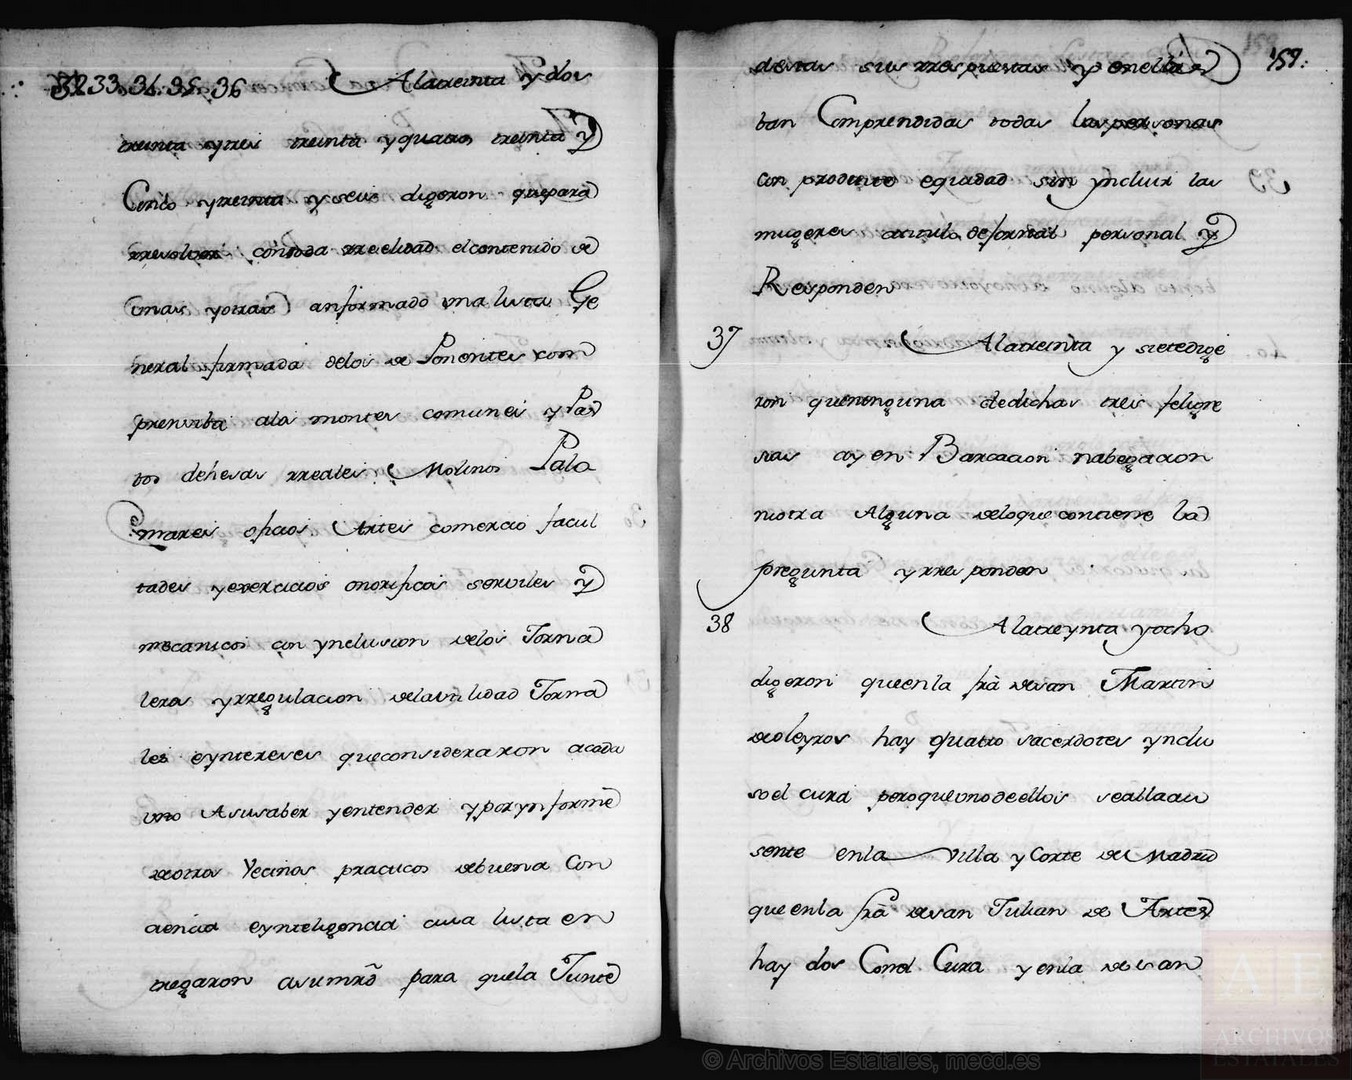 32 33. 34. 35. 36 A latreinta y dos
treinta ytres treinta yquatro treinta y
Cinco ytreinta y seis digeron quepara
rresolver contoda rrealidad elcontenido de
Unas yotras anformado una lista Ge
neral firmada delos de Ponentes com
prensiba alos montes comunes y Pas
tos dehesas rreales Molinos Palo
mares ofiçios Artes comercio facul
tades yexercicios onorificos serviles y
mecanicos con ynclusion delos Jorna
leros yrregulacion delautilidad Jorna
les eyntereses queconsideraron acada
uno Asusaber yentender yporynforme
deotros Vecinos practicos debuena Con
ciencia eynteligencia cuia lista en
tregaron asumrd para quela Junte
destas sus rrespuestas y enella es
tan Comprendidas todas laspersonas
con produuto eguidad sin yncluir las
mugeres atitulo dejornal personal y
Responden
37 Alatreinta y sietedige
ron queninguna dedichas tres feligre
sias ay en Barcacion nabegacion
niotra Alguna deloquecontiene la
pregunta yrresponden
38 A latreynta yocho
digeron queenla fra desan Martin
deoleyros hay quatro sacerdotes ynclu
soel cura peroqueunodeellos seallaau
sente enla Villa y Corte de Madrid
queenla fra desan Julian de Artes
hay dos Conel Cura yenla desan
159.